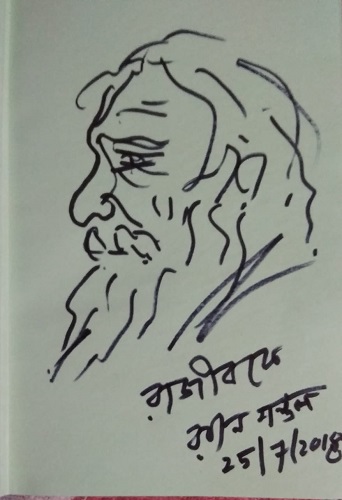 রাজীবকে
রবীন মণ্ডল
25/7/2018